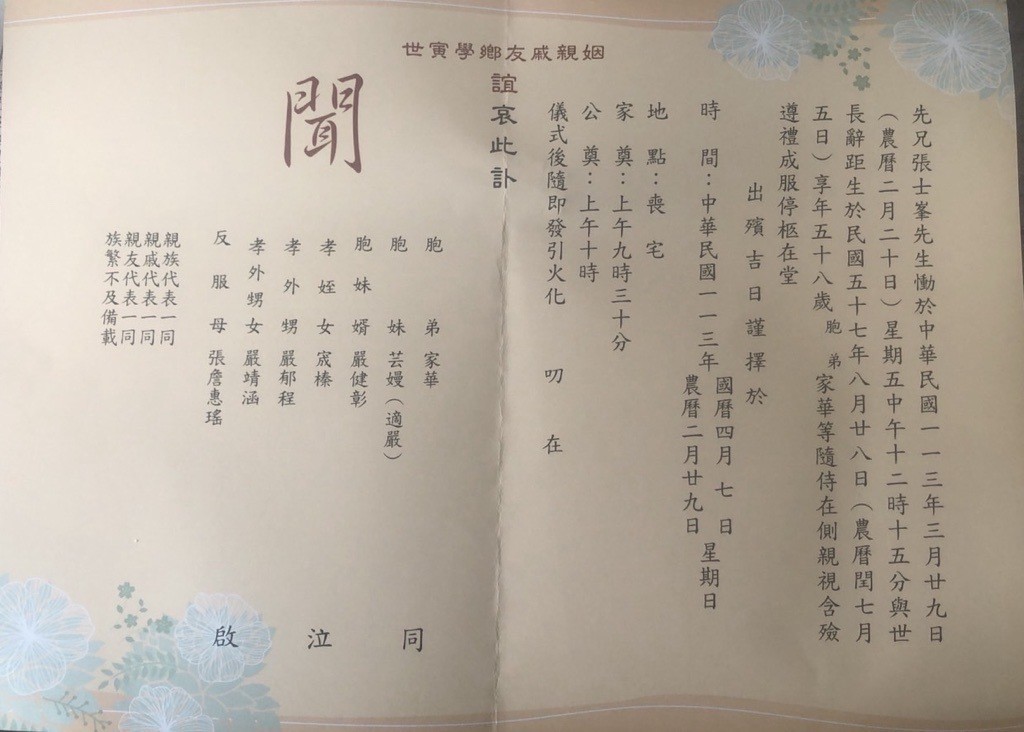 先兄張士峯先生慟於中華民國一一三年三月廿九日
（農曆二月二十日）星期五中午十二時十五分與世
長辭距生於民國五十七年八月廿八日（農曆閏七月
五日）享年五十八歲胞弟家華等隨侍在側親視含殮
遵禮成服停柩在堂
出殯吉日謹擇於
時間：中華民國一一三年國曆四月七日農曆二月廿九日星期日
地點：喪宅
家奠：上午九時三十分
公奠：上午十時
儀式後隨即發引火化 叨在
姻親戚友鄉學寅世
誼哀此訃
聞
胞弟 家華
胞妹 芸嫚（適嚴）
胞妹婿 嚴健彰
孝姪女 宬榛
孝外甥 嚴郁程
孝外甥女 嚴靖涵
反服母 張詹惠瑤
親族代表一同
親戚代表一同
親友代表一同
族繁不及備載
同泣啟